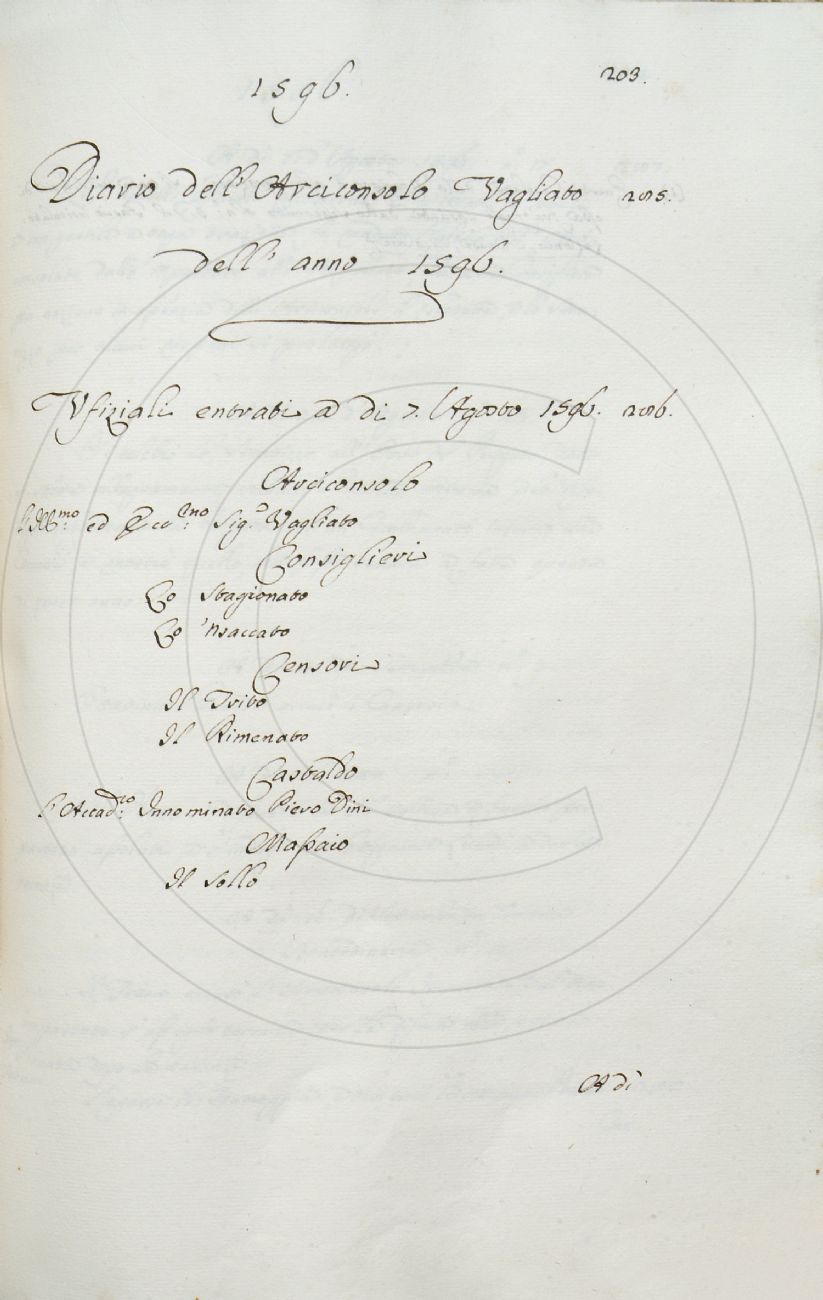 1596.
203.
Diario dell' Arciconsolo Vagliato 205.
dell' anno 1596.
Vfiziali entrati a di 7. Agosto 1596. 206.
Arciconsolo
L'Ill:mo ed Ecc:mo Sig.e Vagliato
Consiglieri
Lo Stagionato
Lo 'nsaccato
Censori
Il Trito
Il Rimenato
Castaldo
L'Accad:co Innominato Piero Dini
Massaio
Il Sollo
A di